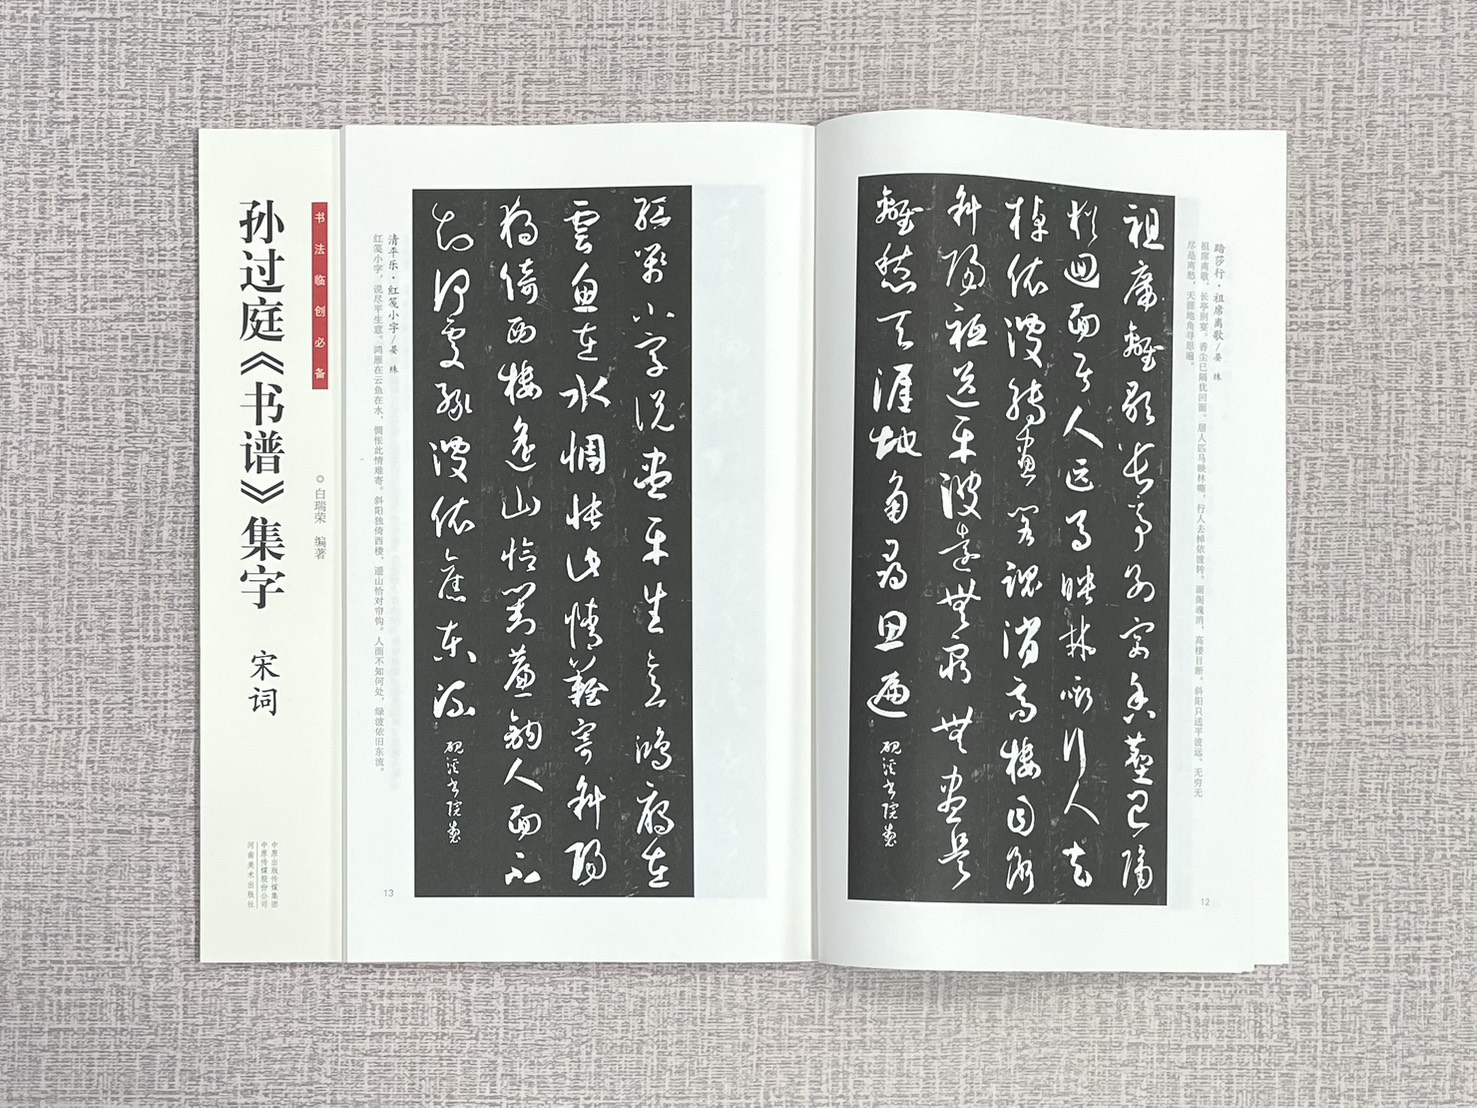 踏莎行·祖席离歌/晏 殊
祖席离歌，长亭别宴，香尘已隔犹回面。居人匹马映林嘶，行人去棹依波转。画阁魂消，高楼目断，斜阳只送平波远。无穷无
尽是离愁，天涯地角寻思遍。
祖席離歌長亭別宴香塵已隔
猶迴面居人匹馬映林嘶行人去
棹依波轉畫閣魂消高樓目斷
斜陽祗送平波遠無窮無盡是
離愁天涯地角尋思遍
硯溪書院
12
紅箋小字說盡平生意鴻雁在
雲魚在水惆悵此情難寄斜陽
獨倚西樓遙山恰對簾鉤人面不
知何處綠波依舊東流
硯溪書院
清平乐·红笺小字/晏 殊
红笺小字，说尽平生意。鸿雁在云鱼在水，惆怅此情难寄。斜阳独倚西楼，遥山恰对帘钩。人面不知何处，绿波依旧东流。
13
书法临创必备
◎白瑞荣 编著
孙过庭《书谱》集字 宋词
中原出版传媒集团
中原传媒股份公司
河南美术出版社